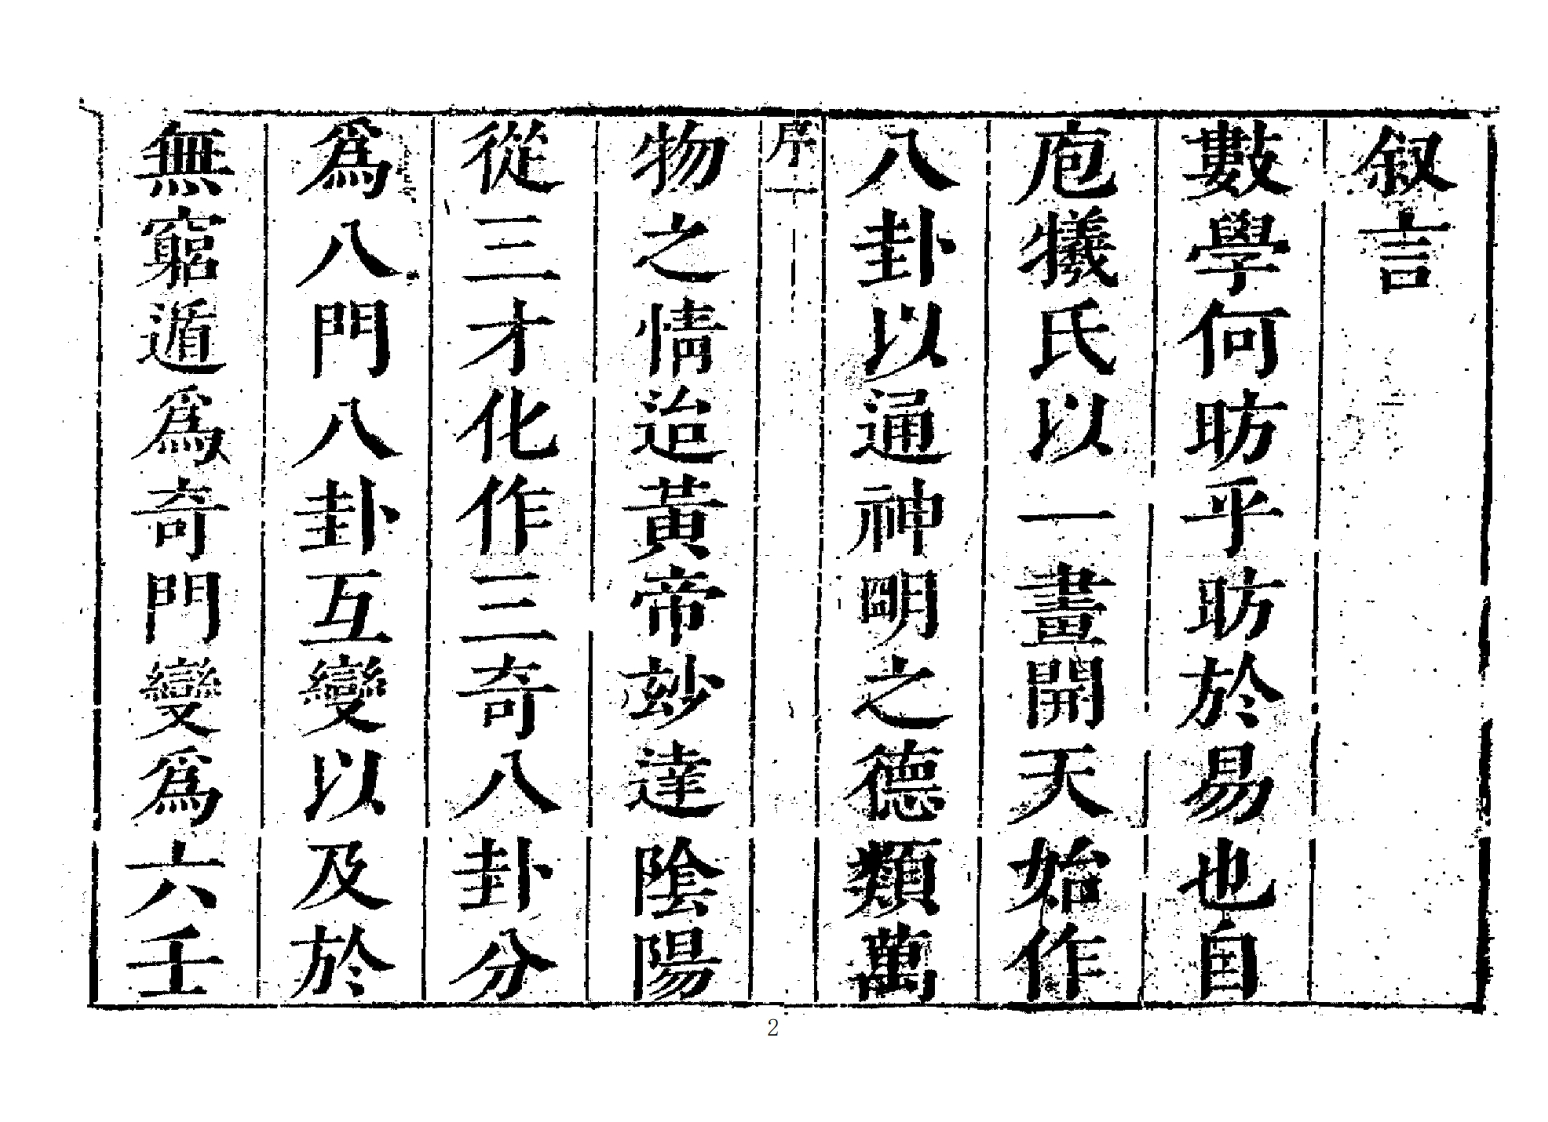 叙言
數學何昉乎昉於易也自
庖犧氏以一畫開天始作
八卦以通神明之德類萬
序 一
物之情迨黃帝玅達陰陽
從三才化作三奇八卦分
爲八門八卦互變以及於
無窮遁爲奇門變爲六壬
2